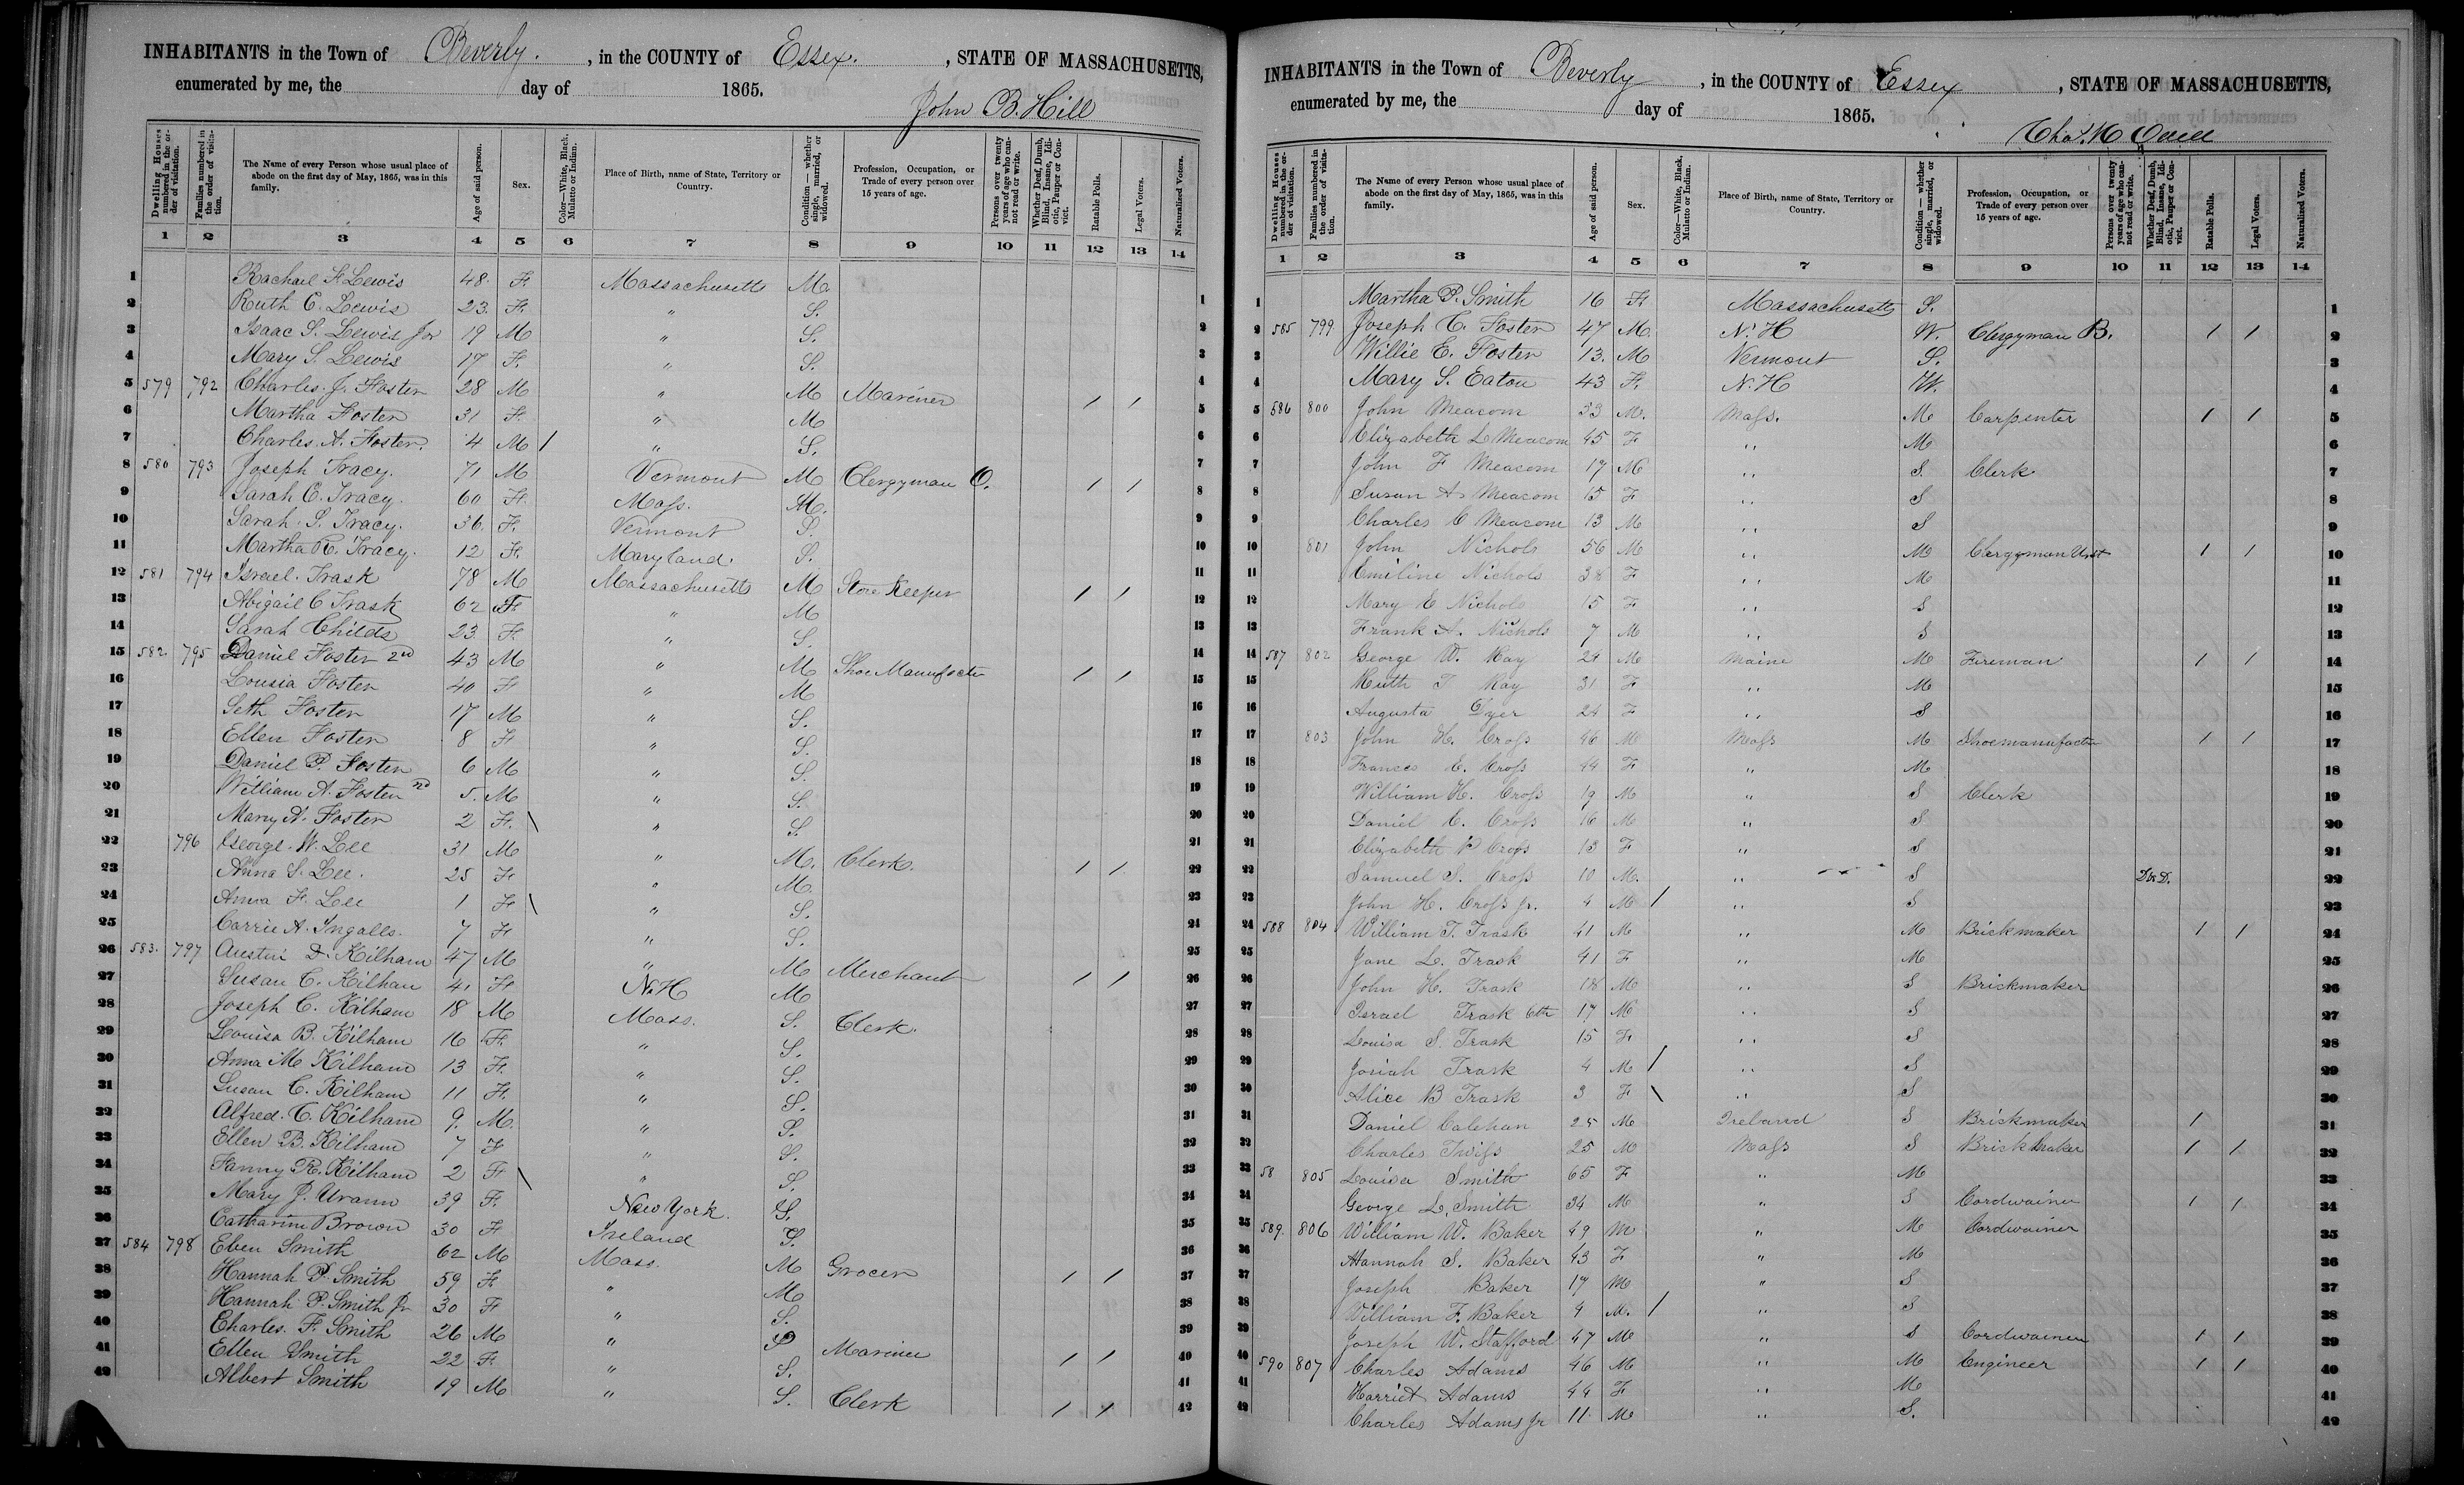 INHABITANTS in the Town of Beverly. , in the COUNTY of Essex. , STATE OF MASSACHUSETTS,
enumerated by me, the day of 1865.
John B. Hill
Dwelling Houses numbered in the order of visitation.
Families numbered in the order of visitation.
The Name of every Person whose usual place of abode on the first day of May, 1865, was in this family.
Age of said person.
Sex.
Color—White, Black, Mulatto or Indian.
Place of Birth, name of State, Territory or Country.
Condition — whether single, married, or widowed.
Profession, Occupation, or Trade of every person over 15 years of age.
Persons over twenty years of age who cannot read or write.
Whether Deaf, Dumb, Blind, Insane, Idiotic, Pauper or Convict.
Ratable Polls.
Legal Voters.
Naturalized Voters.
1 2 3 4 5 6 7 8 9 10 11 12 13 14
1 Rachael F. Lewis 48. F. Massachusetts M. 1
2 Ruth C. Lewis 23. F. " S. 2
3 Isaac S. Lewis Jr 19 M " S. 3
4 Mary S. Lewis 17 F. " S. 4
5 579 792 Charles. J. Foster 28 M " M Mariner / / 5
6 Martha Foster 31 F. " M 6
7 Charles. A. Foster. 4 M / " S. 7
8 580 793 Joseph Tracy. 71 M Vermont M Clergyman O. / / 8
9 Sarah C. Tracy. 60 F. Mass. M. 9
10 Sarah. S. Tracy. 36. F. Vermont S. 10
11 Martha R. Tracy. 12 F. Maryland. S. 11
12 581 794 Israel. Trask 78 M Massachusetts M Store Keeper / / 12
13 Abigail C Trask 62 F. " M 13
14 Sarah Childs 23. F. " S. 14
15 582. 795 Daniel Foster 2nd 43 M " M Shoe Manufactr / / 15
16 Lousia Foster 40 F " M 16
17 Seth Foster 17 M " S. 17
18 Ellen Foster 8 F " S. 18
19 Daniel P. Foster 6 M " S. 19
20 William A. Foster 2d 5. M " S. 20
21 Mary A. Foster 2 F. \ " S. 21
22 796 George. W. Lee 31 M " M. Clerk. / / 22
23 Anna S. Lee. 25 F " M. 23
24 Anna F. Lee 1 F \ " S. 24
25 Carrie A. Ingalls. 7 F " S. 25
26 583. 797 Austin D. Kilham 47 M " M Merchant / / 26
27 Susan C. Kilham 41 F N.H M 27
28 Joseph C. Kilham 18 M Mass. S. Clerk. 28
29 Louisa B. Kilham 16 F. " S. 29
30 Anna M Kilham 13 F. " S. 30
31 Susan C. Kilham 11 F. " S. 31
32 Alfred. C. Kilham 9. M. " S. 32
33 Ellen B. Kilham 7 F " S. 33
34 Fanny R. Kilham 2 F \ " S. 34
35 Mary J. Urann 39 F. New York. S. 35
36 Catharine Brown 30 F Ireland S. 36
37 584 798 Eben Smith 62 M Mass. M Grocer / / 37
38 Hannah P. Smith 59 F. " M 38
39 Hannah P. Smith Jr 30 F " S. 39
40 Charles. F. Smith 26 M " S Mariner / / 40
41 Ellen Smith 22 F. " S. 41
42 Albert Smith 19 M " S. Clerk / / 42
INHABITANTS in the Town of Beverly , in the COUNTY of Essex , STATE OF MASSACHUSETTS,
enumerated by me, the day of 1865.
Dwelling Houses numbered in the order of visitation.
Families numbered in the order of visitation.
The Name of every Person whose usual place of abode on the first day of May, 1865, was in this family.
Age of said person.
Sex.
Color—White, Black, Mulatto or Indian.
Place of Birth, name of State, Territory or Country.
Condition — whether single, married, or widowed.
Profession, Occupation, or Trade of every person over 15 years of age.
Persons over twenty years of age who cannot read or write.
Whether Deaf, Dumb, Blind, Insane, Idiotic, Pauper or Convict.
Ratable Polls.
Legal Voters.
Naturalized Voters.
1 2 3 4 5 6 7 8 9 10 11 12 13 14
1 Martha P. Smith 16 F Massachusetts S. 1
2 585 799. Joseph C. Foster 47 M. N.H W. Clergyman B. / / 2
3 Willie E. Foster 13. M Vermont S. 3
4 Mary S. Eaton 43 F. N.H W. 4
5 586 800 John Meacom 33 M. Mass. M Carpenter / / 5
6 Elizabeth L Meacom 45 F " M 6
7 John F Meacom 17 M " S. Clerk 7
8 Susan A. Meacom 15 F " S 8
9 Charles C Meacom 13 M " S 9
10 801 John Nichols 56 M " M Clergyman Unst / / 10
11 Emiline Nichols 38 F " M 11
12 Mary E Nichols 15 F " S 12
13 Frank A. Nichols 7 M " S 13
14 587 802 George W. Kay 29 M Maine M Fireman / / 14
15 Ruth T Kay 31 F " M 15
16 Augusta Dyer 24 F " S 16
17 803 John H. Cross 46 M Mass M Shoemanufactur / / 17
18 Frances E. Cross 44 F " M 18
19 William H. Cross 19 M " S Clerk 19
20 Daniel C. Cross 16 M " S 20
21 Elizabeth P Cross 13 F " S 21
22 Samuel S. Cross 10 M. " S D & D. 22
23 John H. Cross Jr. 4 M / " S 23
24 588 804 William T. Trask 41 M " M Brickmaker / / 24
25 Jane L. Trask 41 F " M 25
26 John H. Trask 18 M " S Brickmaker 26
27 Israel Trask 6th 17 M " S 27
28 Louisa S. Trask 15 F. " S 28
29 Josiah Trask 4 M / " S 29
30 Alice B Trask 3 F \ " S 30
31 Daniel Calehan 25 M Ireland S Brickmaker / 31
32 Charles Twiss 25 M Mass S Brickmaker / / 32
33 58 805 Louisa Smith 65 F " M 33
34 George L. Smith 34 M " S Cordwainer / / 34
35 589. 806 William W. Baker 49 M " M Cordwainer 35
36 Hannah S. Baker 43 F " M 36
37 Joseph Baker 17 M " S 37
38 William F. Baker 9 M. / " S 38
39 Joseph W. Stafford 47 M " S Cordwainer / / 39
40 590 807 Charles Adams 46 M " M Engineer / / 40
41 Harriet Adams 44 F " M 41
42 Charles Adams Jr 11 M " S. 42